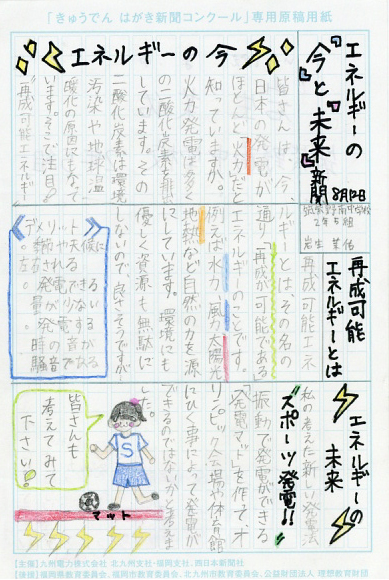 「きゅうでん はがき新聞コンクール」専用原稿用紙
エネルギーの
「今」と「未来」新聞
8月12日
2年5組
エネルギーの今
皆さんは、今、
日本の発電が
ほとんど火力だと
知っていますか。
火力発電は多く
の二酸化炭素を排出
しています。その
二酸化炭素は環境
汚染や地球温
暖化の原因になって
います。そこで注目の
再成可能エネルギ
再成可能
エネルギーとは
再成可能エネ
ルギーとはその名の
通り「再成が可能である」
エネルギーのことです。
例えば水力、風力、太陽光
地熱など自然の力を源
にしています。環境にも
優しく資源も無駄に
しないので、良さそうですが
デメリット
エネルギーの
未来
私の考えた新しい発電法
"スポーツ発電!!"
振動で発電ができる
「発電マット」を作って、オ
リンピック会場や体育館
にひく事によって発電が
できるのではないかと考えま
した。
皆さんも
考えてみて
下さい!
S
マット
【主催】九州電力株式会社 北九州支社・福岡支社、西日本新聞社
【後援】福岡県教育委員会、福岡市教育委員会、北九州市教育委員会、公益財団法人 理想教育財団